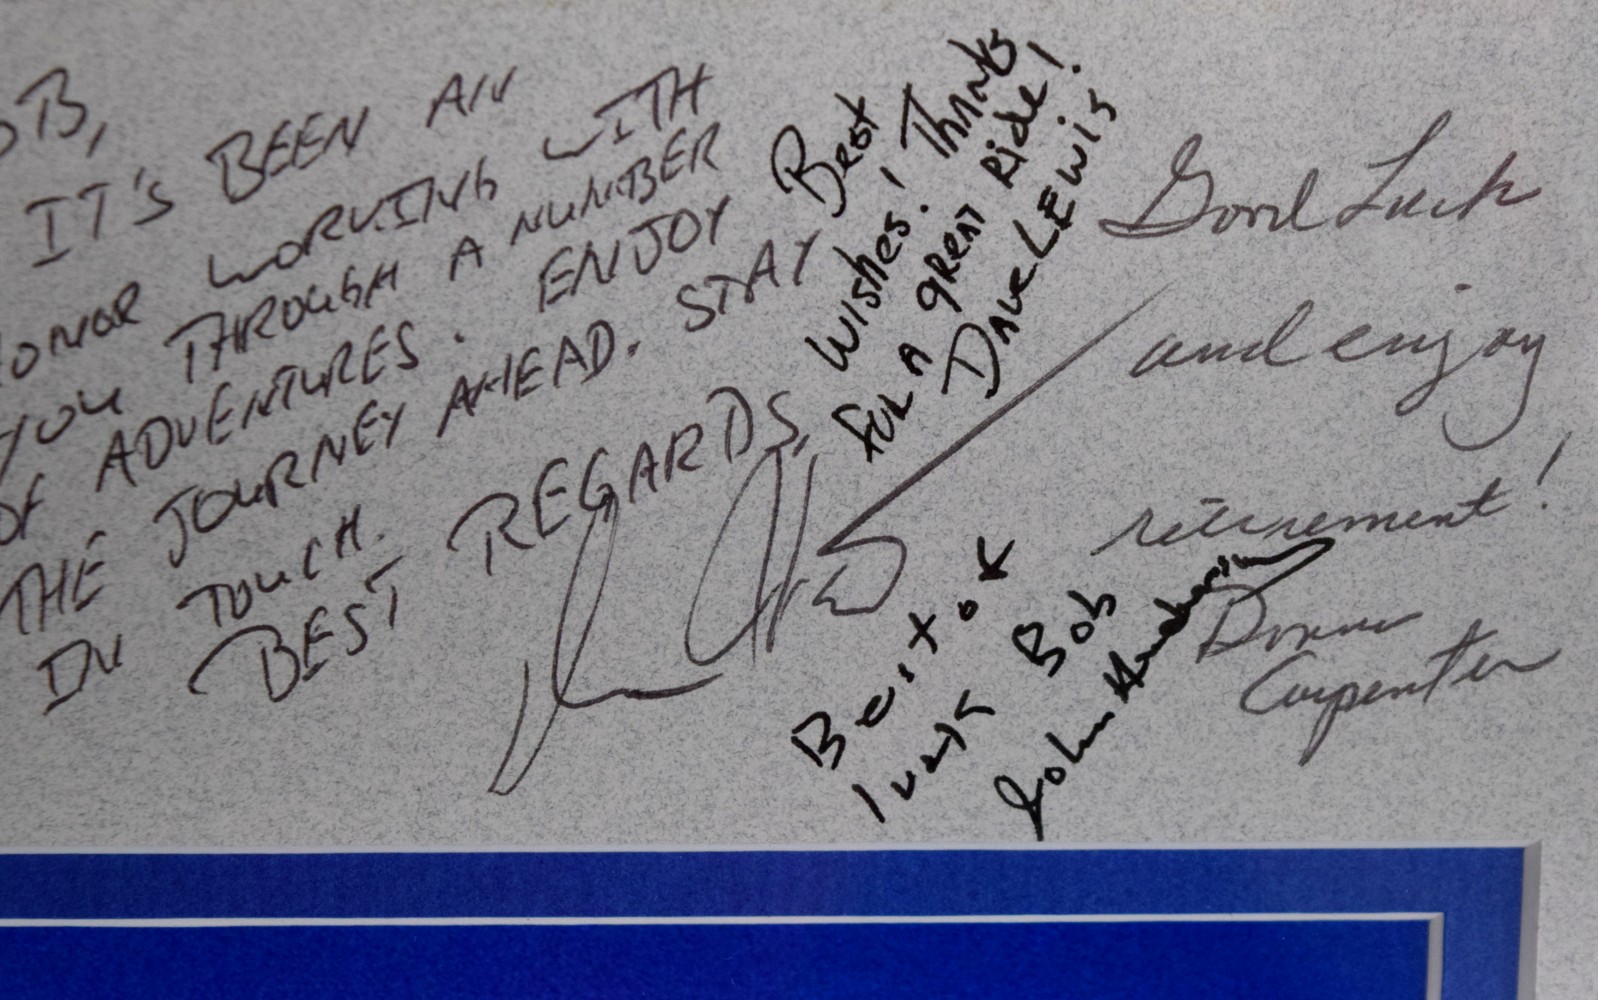 OB,
IT'S BEEN AN
HONOR WORKING WITH
YOU THROUGH A NUMBER
OF ADVENTURES. ENJOY
THE JOURNEY AHEAD. STAY
IN TOUCH.
BEST REGARDS,
Best
Wishes! Thanks
for A great Ride!
Dave LEWIS
Good Luck
and enjoy
retirement!
Donna
Carpenter
Best of
luck Bob
John